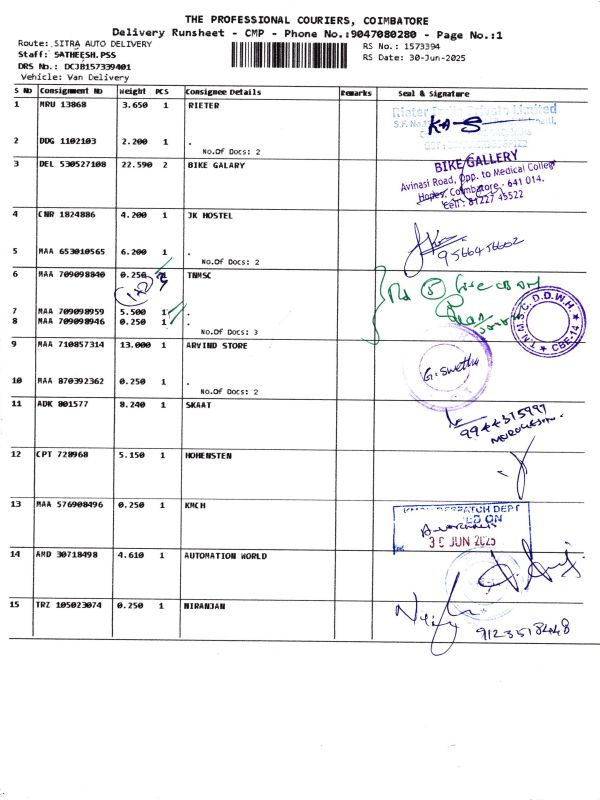 THE PROFESSIONAL COURIERS, COIMBATORE
Delivery Runsheet - CMP - Phone No.:9047080280 - Page No.:1
Route: SITRA AUTO DELIVERY RS No.: 1573394
Staff: SATHEESH.PSS RS Date: 30-Jun-2025
DRS No.: DCJB157339401
Vehicle: Van Delivery
S No Consignment No Weight PCS Consignee Details Remarks Seal & Signature
1 MRU 13868 3.650 1 RIETER
Rieter India Private Limited
S.F. No.
2 DDG 1102103 2.200 1 .
No.Of Docs: 2
3 DEL 530527108 22.590 2 BIKE GALARY
BIKE GALLERY
Avinasi Road, Opp. to Medical College
Hopes, Coimbatore - 641 014.
Cell: 81227 45522
4 CNR 1824886 4.200 1 JK HOSTEL
5 MAA 653010565 6.200 1 .
9566456602
No.Of Docs: 2
6 MAA 709098840 0.250 TNMSC
7 MAA 709098959 5.500 1 .
8 MAA 709098946 0.250 1 .
T.N.M.S.C. D.D.W.H. CBE-14
No.Of Docs: 3
9 MAA 710857314 13.000 1 ARVIND STORE
G. Swetha
10 MAA 870392362 0.250 1 .
No.Of Docs: 2
11 ADK 801577 8.240 1 SKAAT
9944375997
12 CPT 728968 5.150 1 HOHENSTEN
13 MAA 576908496 0.250 1 KMCH
DESPATCH DEPT
ED ON
30 JUN 2025
14 AMD 30718498 4.610 1 AUTOMATION WORLD
15 TRZ 105023074 0.250 1 NIRANJAN
9123578448